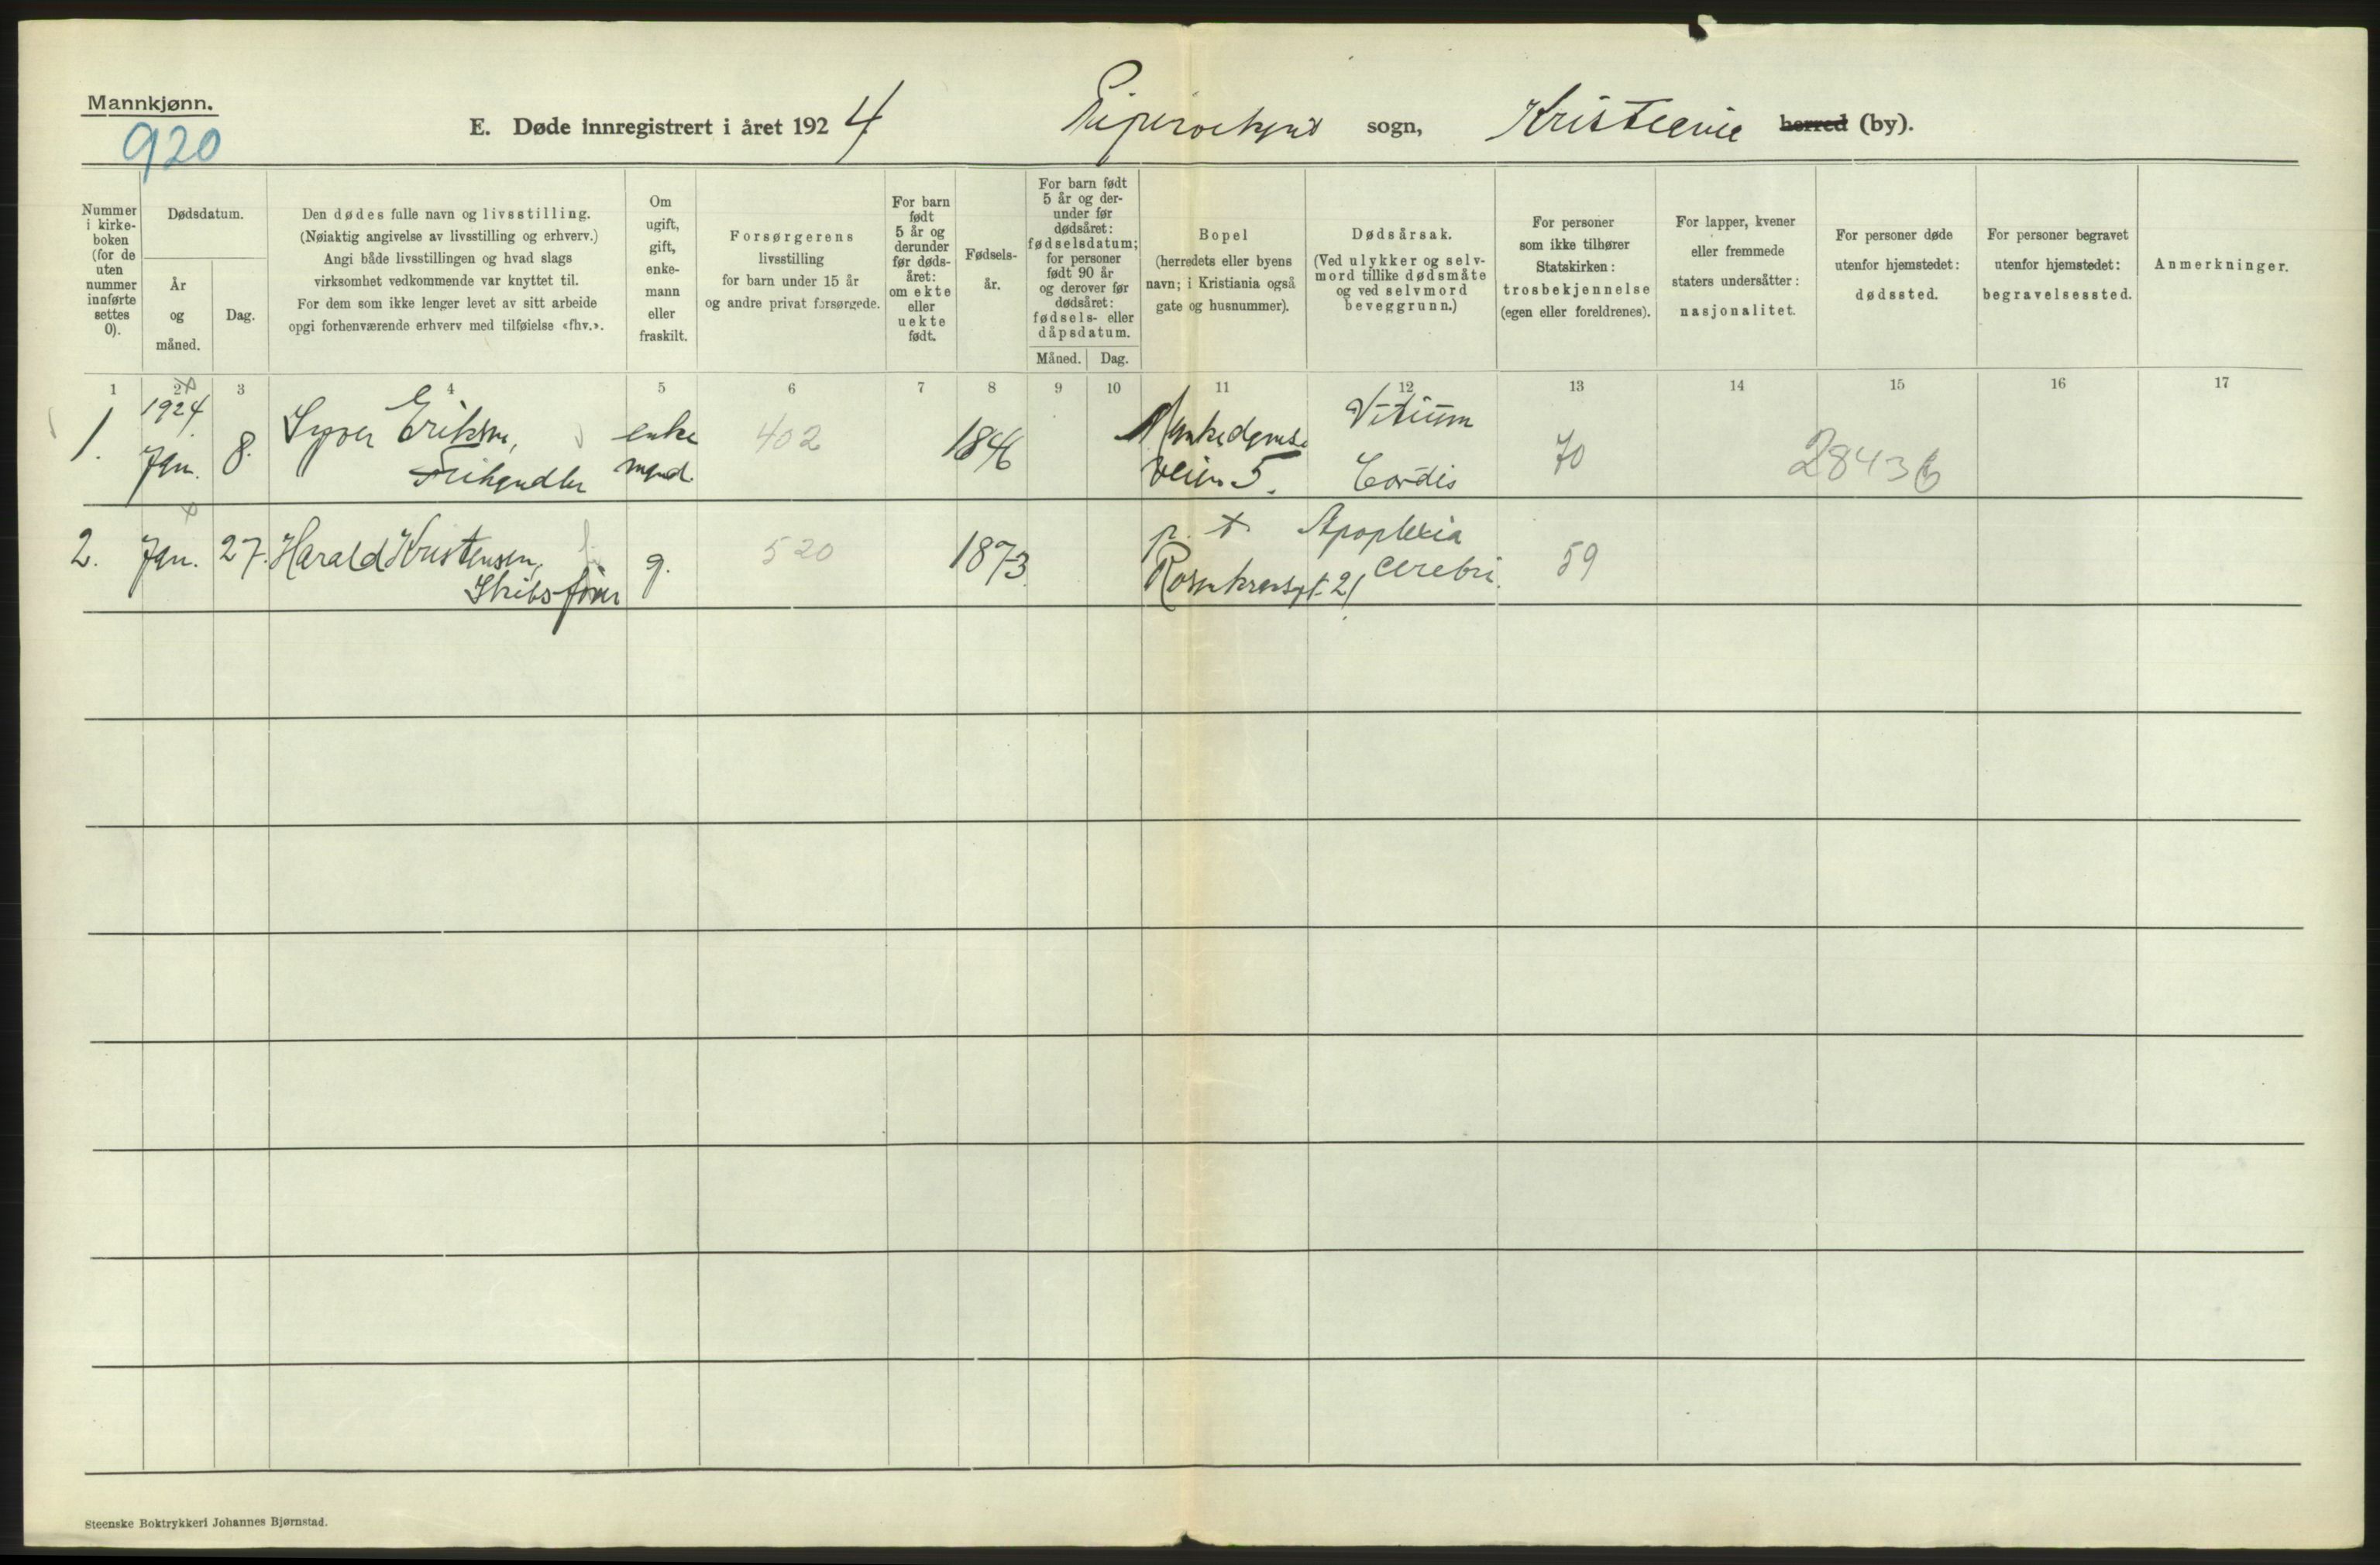 Mannkjønn.
920
E. Døde innregistrert i året 1924 sogn, Kristiania herred (by).
Nummer i kirke- boken (for de uten nummer innførte settes 0).
Dødsdatum.
År og måned.
Dag.
Den dødes fulle navn og livsstilling.
(Nøiaktig angivelse av livsstilling og erhverv.)
Angi både livsstillingen og hvad slags
virksomhet vedkommende var knyttet til.
For dem som ikke lenger levet av sitt arbeide
opgi forhenværende erhverv med tilføielse «fhv.».
Om ugift, gift, enke- mann eller fraskilt.
Forsørgerens
livsstilling
for barn under 15 år
og andre privat forsørgede.
For barn født 5 år og derunder før døds- året: om ekte eller uekte født.
Fødsels- år.
For barn født 5 år og der- under før dødsåret: fødselsdatum; for personer født 90 år og derover før dødsåret: fødsels- eller dåpsdatum.
Måned. Dag.
Bopel
(herredets eller byens
navn; i Kristiania også
gate og husnummer).
Dødsårsak.
(Ved ulykker og selv-
mord tillike dødsmåte
og ved selvmord
beveggrunn.)
For personer
som ikke tilhører
Statskirken:
trosbekjennelse
(egen eller foreldrenes).
For lapper, kvener
eller fremmede
staters undersåtter:
nasjonalitet.
For personer døde
utenfor hjemstedet:
dødssted.
For personer begravet
utenfor hjemstedet:
begravelsessted.
Anmerkninger.
1 2 3 4 5 6 7 8 9 10 11 12 13 14 15 16 17
1. 1924 Jan. 8. Syver Eriksen, enke mand. 402 1846 Munkedams veien 5. Vitium Cordis 70 28436
Frihandler
2. Jan. 27. Harald Kristensen, g. 520 1873 p. t. Rosenkransgt. 21 Apoplexia cerebri. 59
Skibsfører
Steenske Boktrykkeri Johannes Bjørnstad.